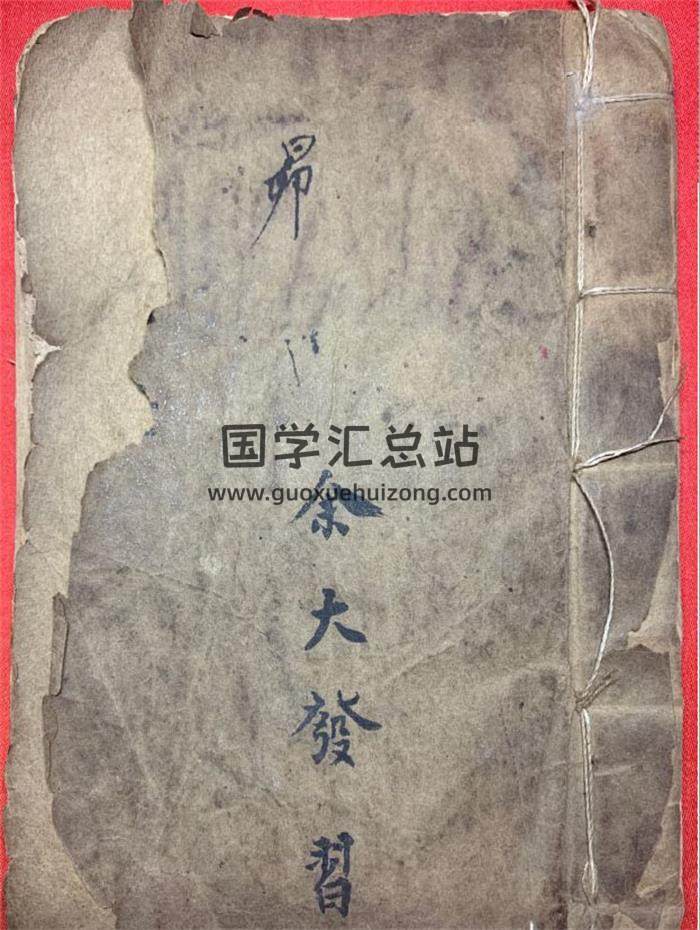 昴
国学汇总站
www.guoxuehuizong.com
余大發習